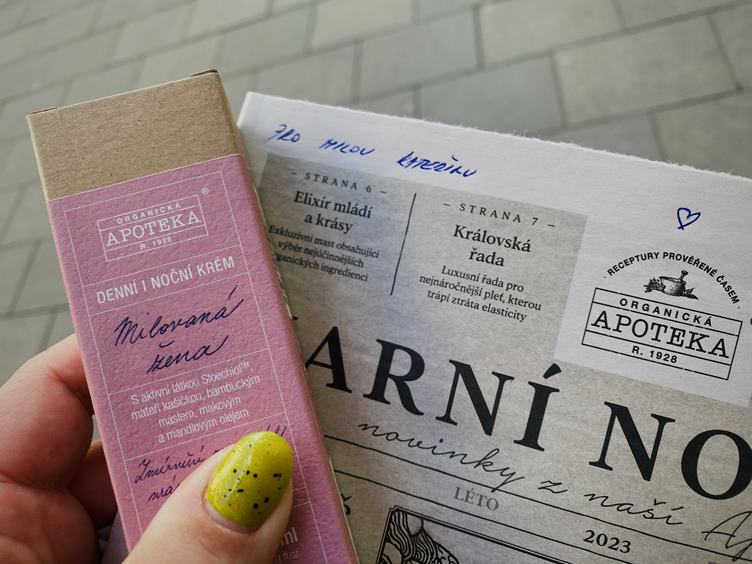 ORGANICKÁ
APOTEKA®
R. 1928
DENNÍ I NOČNÍ KRÉM
Milovaná
žena
S aktivní látkou Stoechiol™,
mateří kašičkou, bambuckým
máslem, makovým
a mandlovým olejem
Zmírnění
ml
fl oz.
PRO MILOU KATEŘINU
- STRANA 6 -
Elixír mládí
a krásy
Exkluzivní mast obsahující
výběr nejúčinnějších
organických ingrediencí
- STRANA 7 -
Královská
řada
Luxusní řada pro
nejnáročnější pleť, kterou
trápí ztráta elasticity
RECEPTURY PROVĚŘENÉ ČASEM
ORGANICKÁ
APOTEKA
R. 1928
ARNÍ NO
novinky z naší
LÉTO
2023